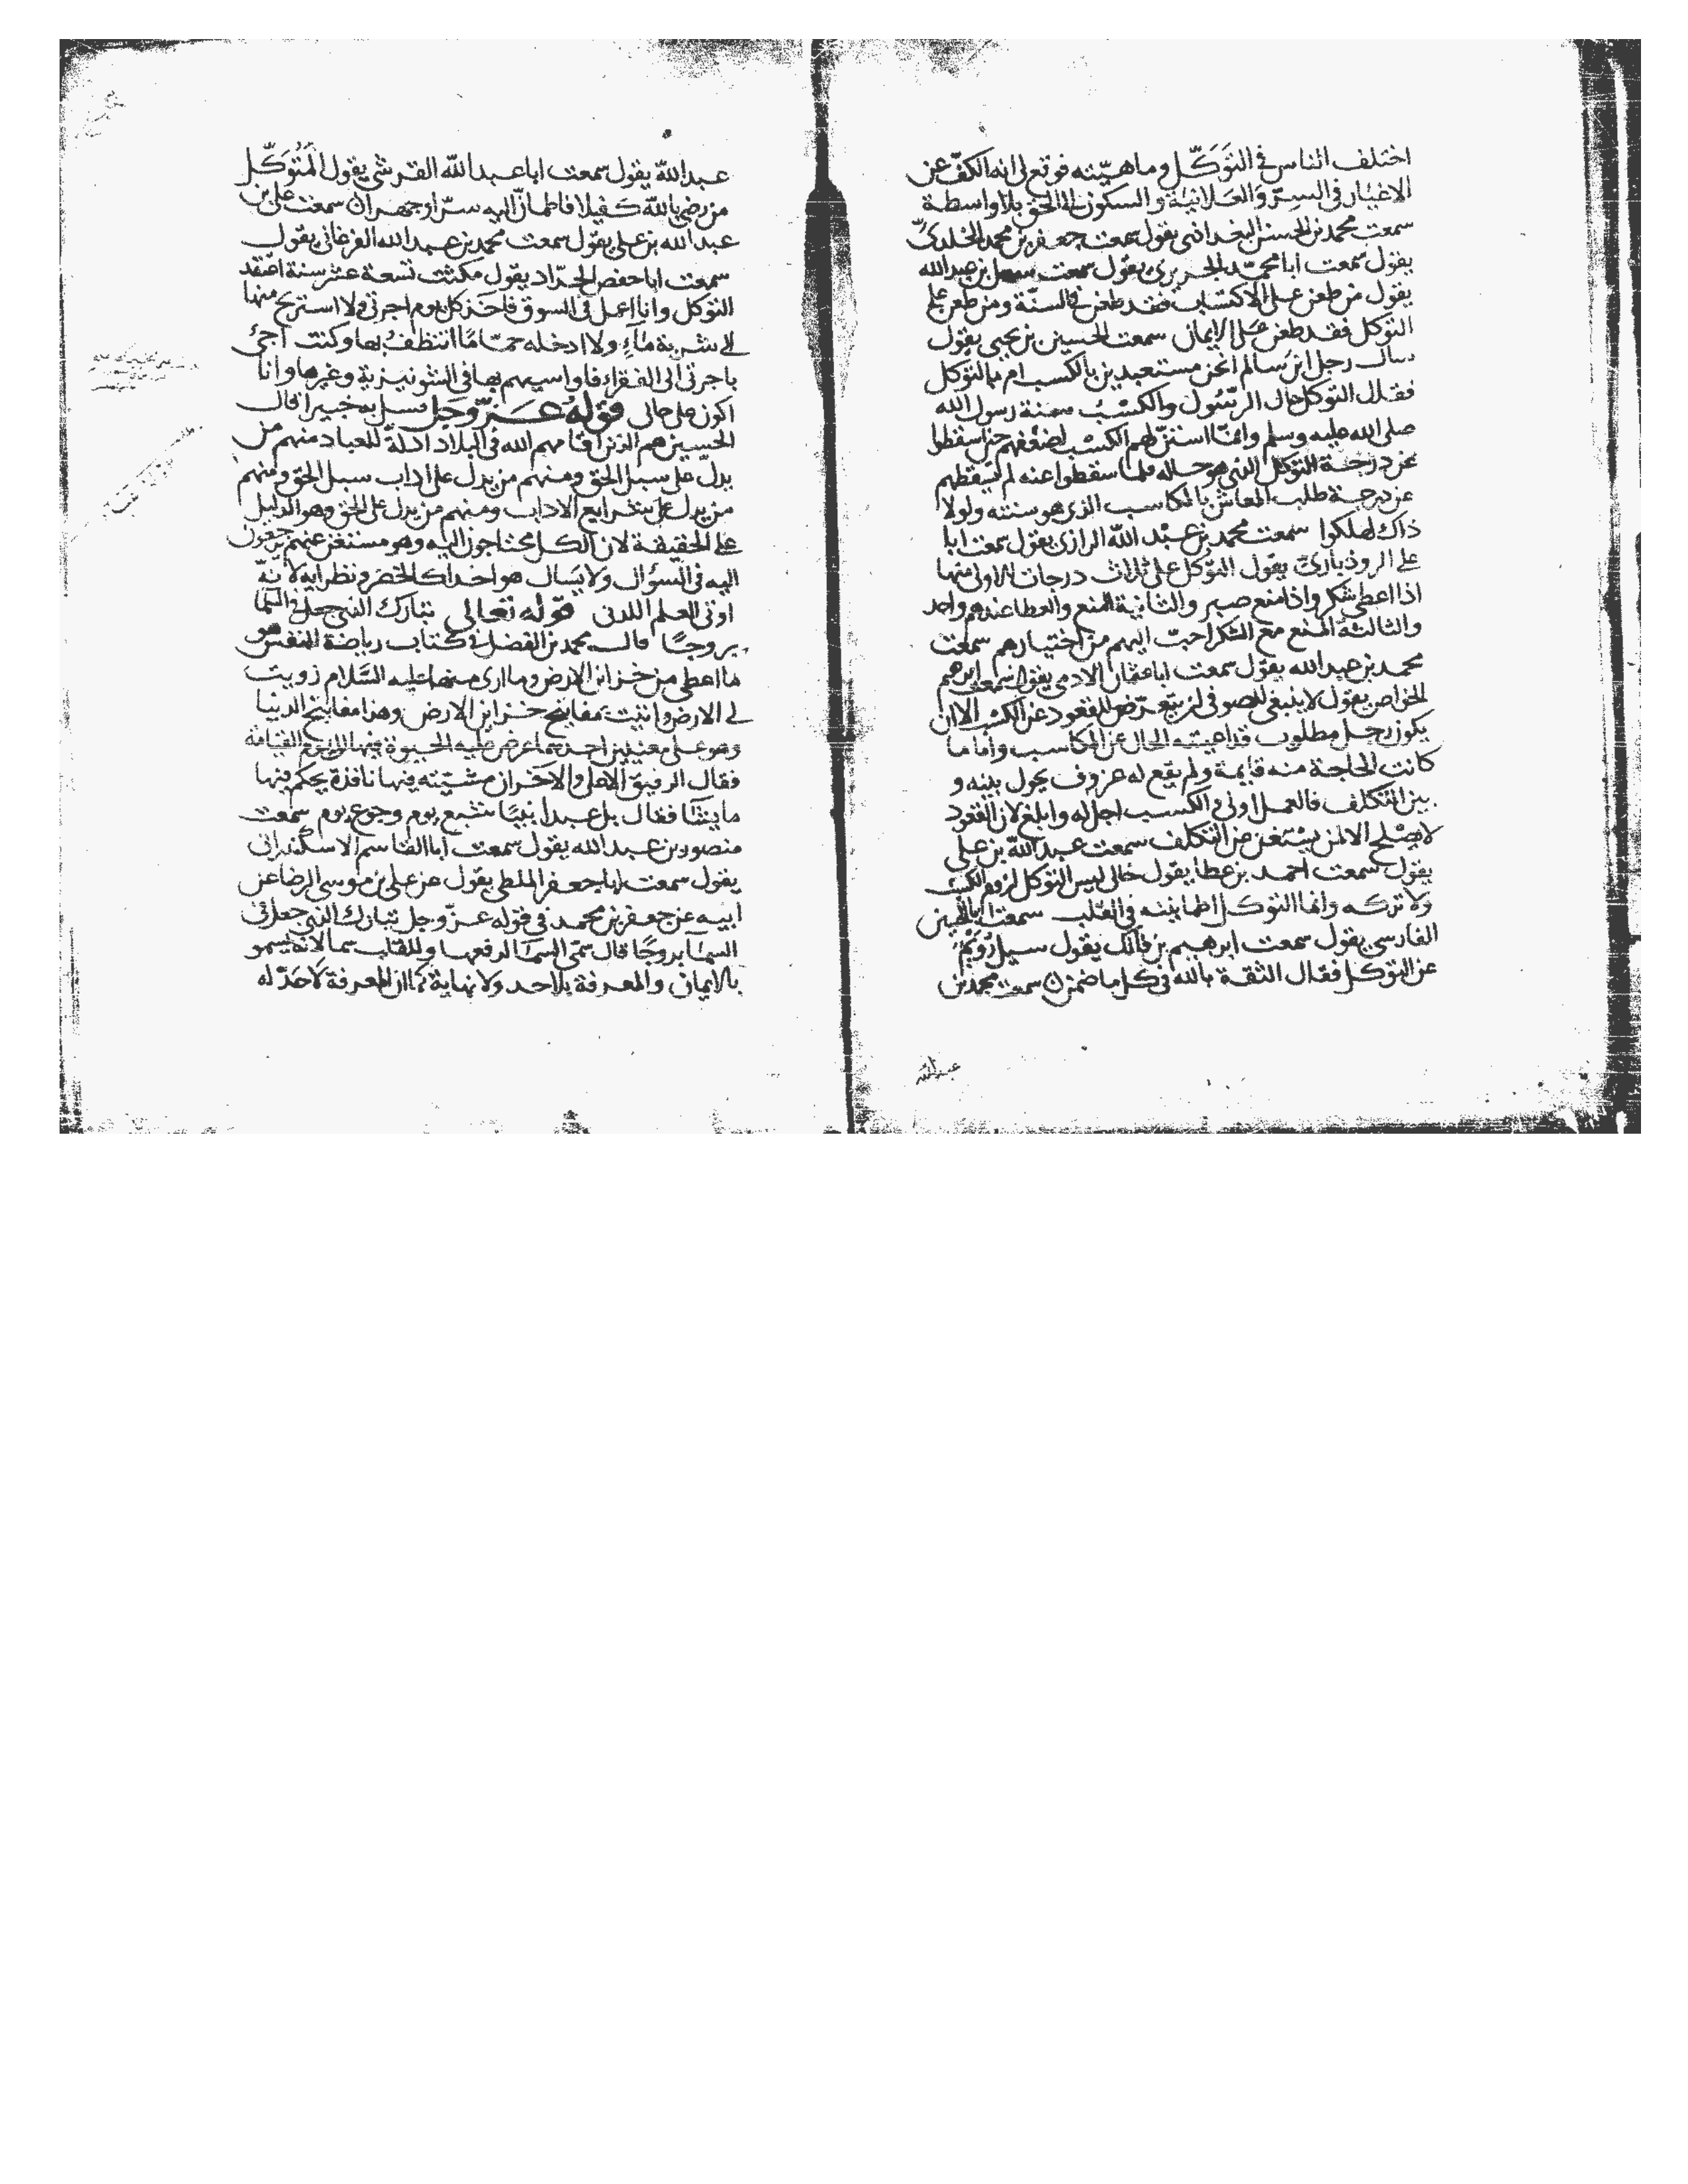 اختلف الناس في التَوَكّل وماهيّته فوقع لي انه الكفّ عن
الاغيار في السرّ والعلانية والسكون الى الحق بلا واسطة
سمعت محمد بن الحسن البغدادى يقول سمعت جعفر بن محمد الخلدىّ
يقول سمعت ابا محمّد الجريرى يقول سمعت سهل بن عبدالله
يقول من طعن على الاكتساب فقد طعن في السنّة ومن طعن على
التوكل فقد طعن على الايمان سمعت الحسين بن يحيى يقول
سال رجل ابن سالم انحن مستعبدين بالكسب ام بالتوكل
فقال التوكل حال الرسول والكسْب سنة رسول الله
صلى الله عليه وسلم وانما استنزلهم الكسْب لضعفهم حين اسقطوا
عن درجة التوكل الذي هو حاله فلما سقطوا عنه لم يسقطهم
عن درجة طلب المعاش بالمكاسب الذي هو سنته ولولا
ذاك لهلكوا سمعت محمد بن عبْد اللّه الرازى يقول سمعت ابا
على الروذبارىّ يقول التوكل على ثلاث درجات الاولى منها
اذا اعطى شكر واذا منع صبر والثانية المنع والعطا عندهم واحد
والثالثة المنع مع الشكر احبّ اليهم من اختيارهم سمعت
محمد بن عبدالله يقول سمعت ابا عثمان الادمى يقول سمعت ابرهيم
الخواص يقول لا ينبغي للصوفى ان يتعرّض للقعود عن الكسْب الا ان
يكون رجل مطلوب قد اغنته الحال عن المكاسب واما ما
كانت الحاجة منه قايمة ولم يقع له عزوف يحول بينه و
بين التكلف فالعمل اولى والكسب اجل له وابلغ لان القعود
لا يصْلح الا لمن يسْتغن عن التكلف سمعت عبدالله بن علي
يقول سمعت احمد بن عطا يقول خالى ليس التوكل لزوم الكسب
ولا تركه وانما التوكل طمانينه في القلب سمعت ابا الحسين
الفارسى يقول سمعت ابرهيم بن فاتك يقول سيل رُوَيْم
عن التوكل فقال الثقة بالله في كل ما ضمن سمعت محمد بن
عبدالله
عبدالله يقول سمعت ابا عبدالله القرشي يقول المُتَوَكّل
من رضي بالله كفيلا فاطمانّ اليه سرّا وجهرا سمعت علي بن
عبدالله بن على يقول سمعت محمد بن عبدالله الفرغانى يقول
سمعت ابا حفص الحدّاد يقول مكثت تسعة عشر سنة اعتقد
التوكل وانا اعمل في السوق فاخذ كل يوم اجرتى ولا استريح منها
الى شربة ماءٍ ولا ادخله حمّامًا اتنظف بها وكنت اجئ
باجرتى الى الفقراء فاواسيهم بها في الشونيزية وغيرها وانا
اكون على حالى قوله عزّ وجل فسل به خبيرا قال
الحسين هم الذين اقامهم الله في البلاد ادلّة للعباد منهم من
يدلّ على سبل الحق ومنهم من يدل على اداب سبل الحق ومنهم
من يدل على شرايع الاداب ومنهم من يدل على الحق وهو الدليل
على الحقيقة لان الكل محتاجون اليه وهو مستغن عنهم يرجعون
اليه في السؤال ولا يسال هو احدا كالخضر ونظرايه لانّه
اوتى العلم اللدنى قوله تعالى تبارك الذي جعل في السما
بروجًا قال محمد بن الفضل في كتاب رياضة النفس هو
ما اعطى من خزاين الارض وما ارى منها عليه السّلام زويت
لي الارض واتيت بمفاتيح خزاين الارض وهذا مفاتيح الدنيا
وهو على معنيين احدهما عرض عليه الحيوة فيها الى يوم القيامة
فقال الرفيق الاعلى والآخر ان مشيّته فيها نافذة يحكم فيها
ما يشآ فقال بل عبدا نبيًا شبع يوم وجوع يوم سمعت
منصور بن عبدالله يقول سمعت ابا القاسم الاسكندرانى
يقول سمعت ابا جعفر الملطى يقول عن على بن موسى الرضا عن
ابيه عن جعفر بن محمد في قوله عزّ وجل تبارك الذي جعل في
السما بروجًا قال سمّى السمآ لرفعها وللقلب سما لانه يسمو
بالايمان والمعرفة بلا حد ولا نهاية كما ان المعرفة لا حدّ له